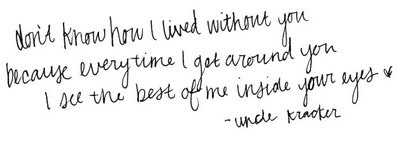 don't know how I lived without you
because everytime I get around you
I see the best of me inside your eyes
- uncle kracker